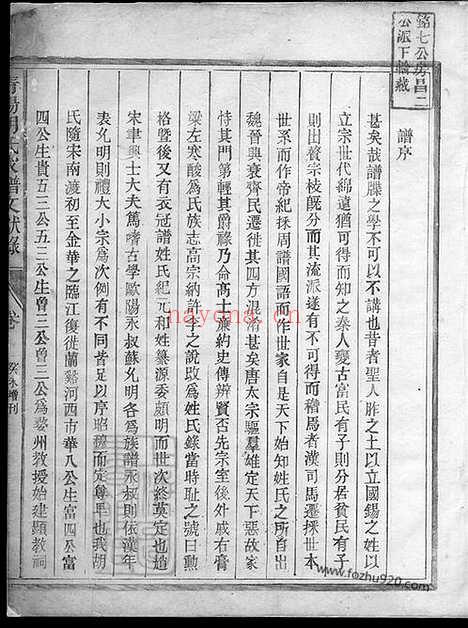 銘七公房昌二
公派下懤藏
譜序
甚矣哉譜牒之學不可以不講也昔者聖人胙之土以立國錫之姓以
立宗世代綿遠猶可得而知之秦人變古富民有子則分居貧民有子
則出贅宗枝既分而其流派不可得而稽焉者漢司馬遷採世本
世系而作帝紀採周譜國語而作世家自是天下始知姓氏之所自出
魏晉興衰齊民遷徙其四方混淆甚矣唐太宗驅羣雄定天下惡故家
恃其門第輕其爵祿乃命高士廉約史傳辨賢否先宗室後外戚右膏
梁左寒酸為氏族志高宗納許子之說改為姓氏錄當時耻之號曰勳
格暨後又有衣冠譜姓氏紀元和姓纂源委頗明而世次終莫定也趙
宋聿興士大夫篤嗜古學歐陽永叔蘇允明各為族譜永叔則依漢年
表允明則禮大小宗為次例有不同皆足以序昭穆而定尊卑也我胡
氏隨宋南渡初至金華之臨江復徙蘭谿河西市華八公生富四公富
四公生貴五三公五三公生曾三公曾三公為婺州教授始建顯教祠
青陽胡氏家譜文獻錄
卷一
癸未增刊
nayona.cn
www.fozhu920.com